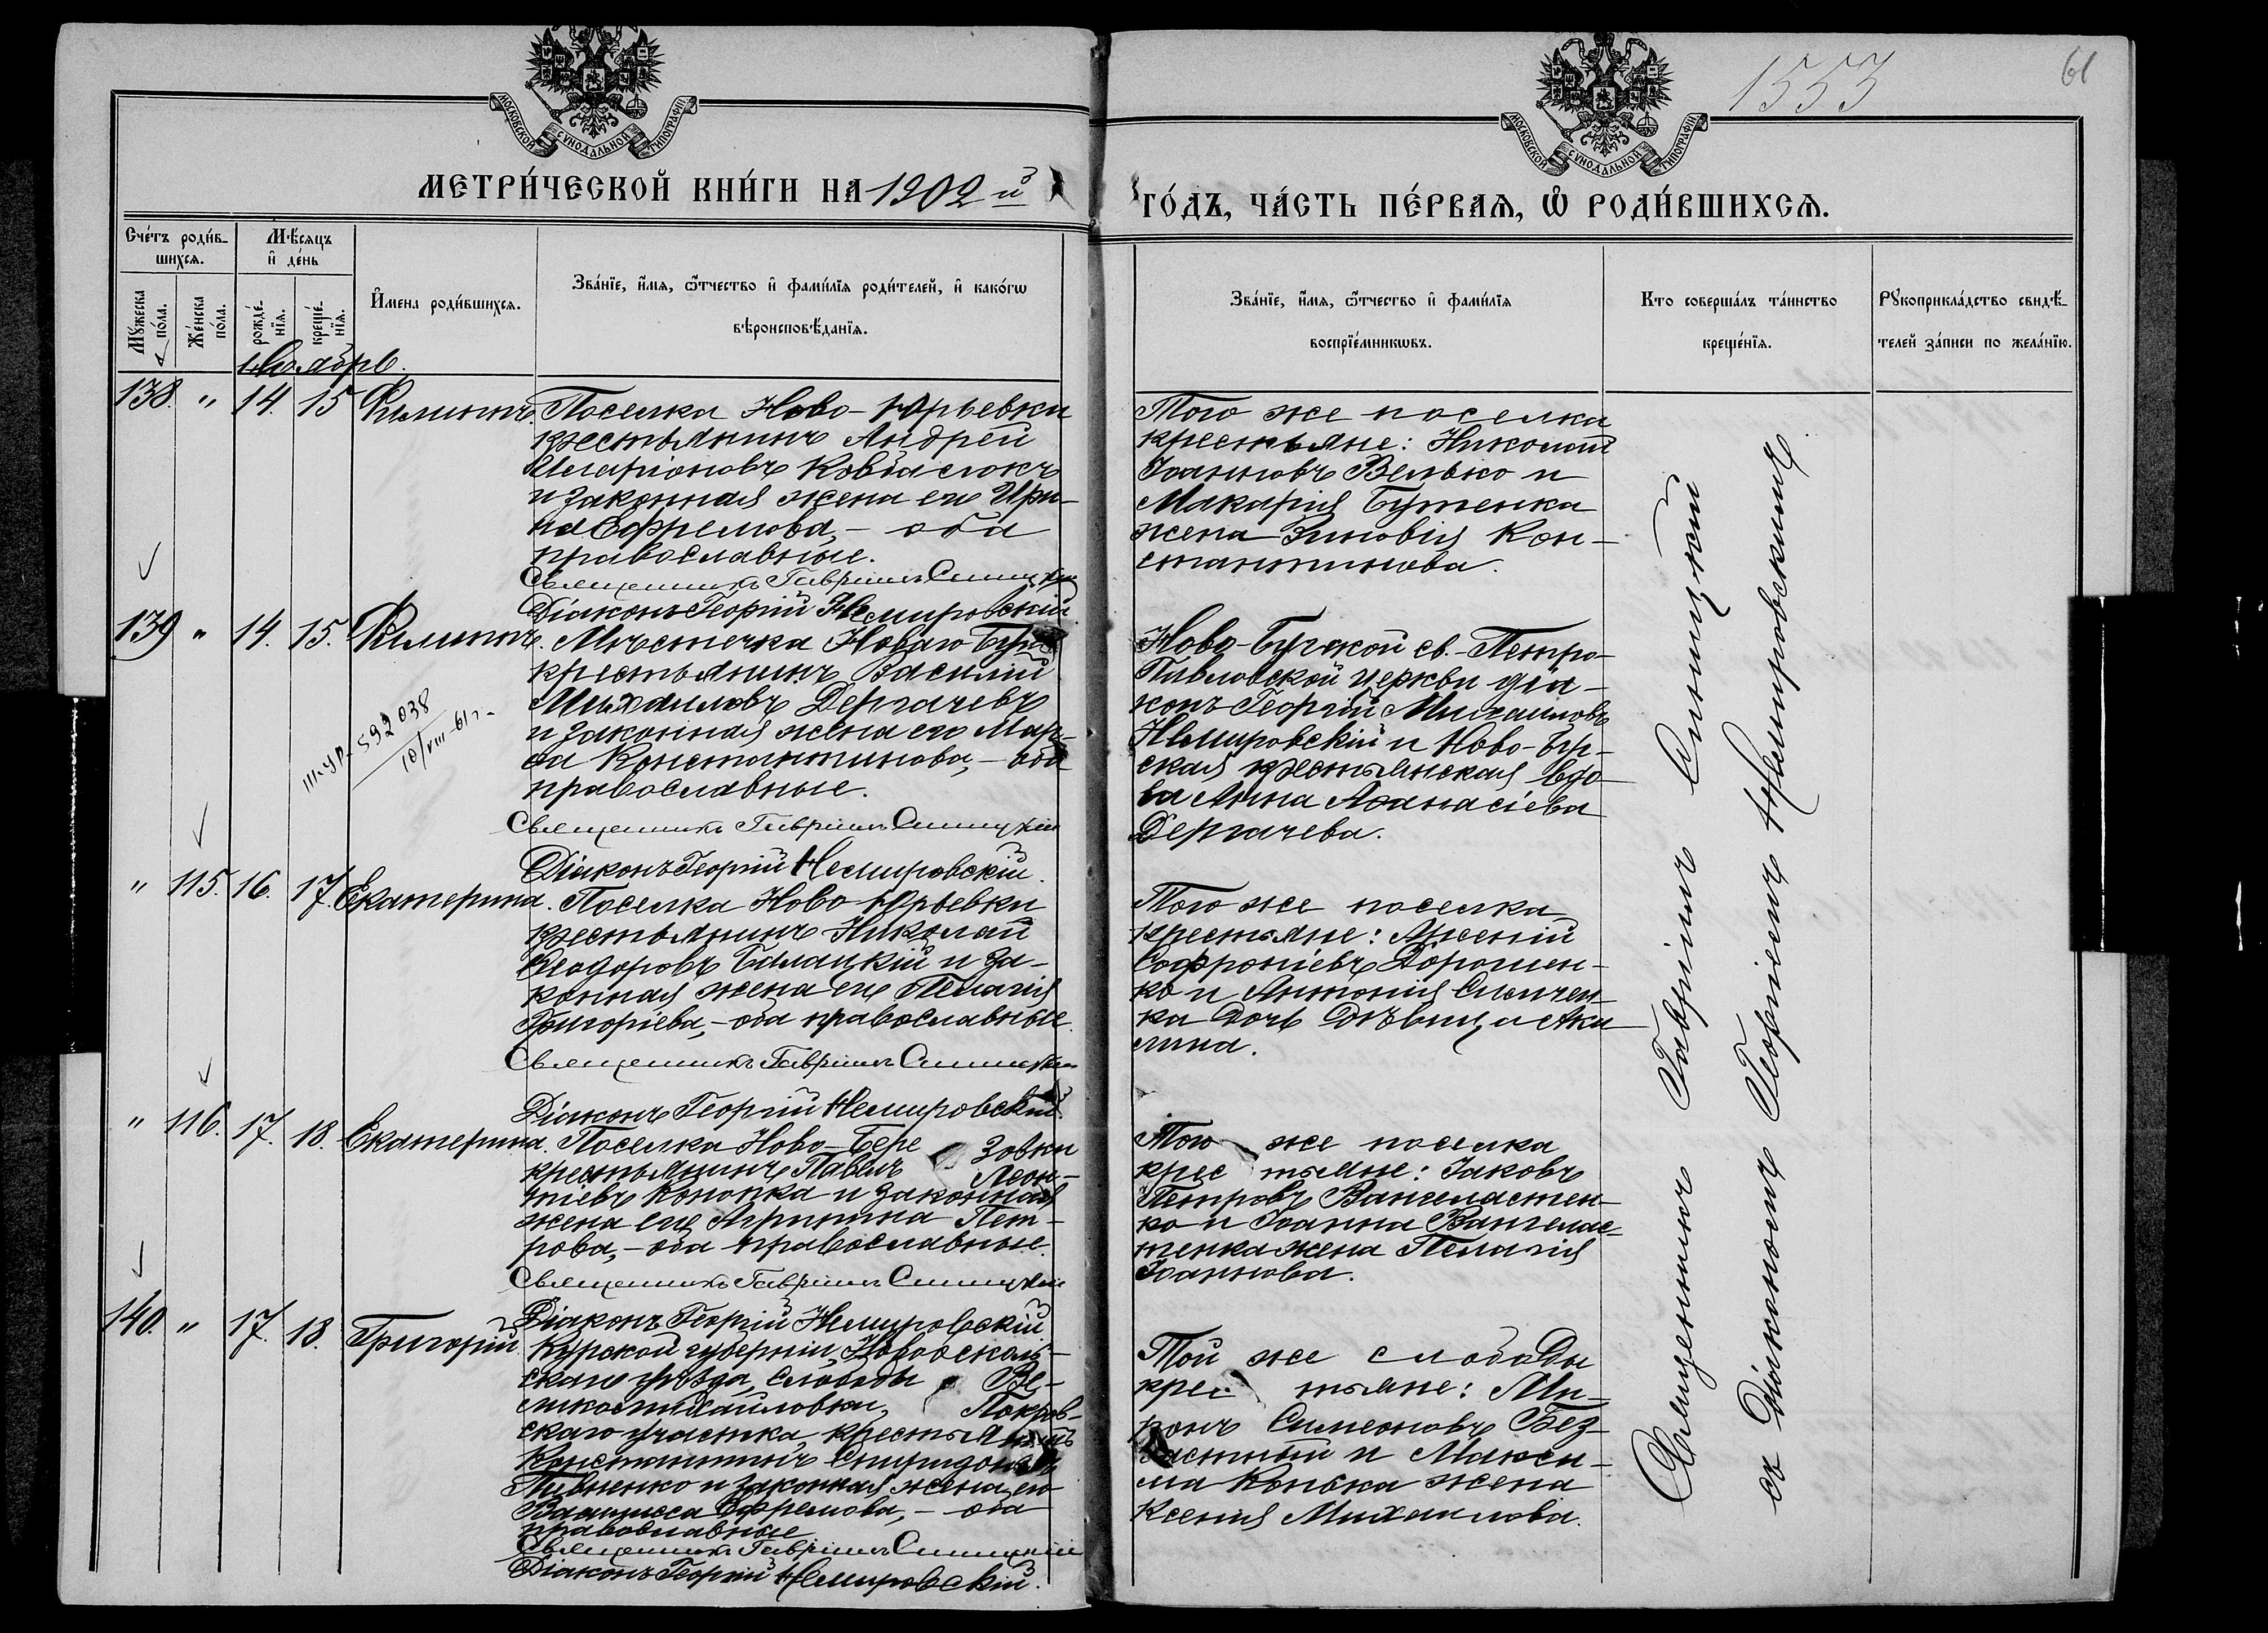 1553
61
МОСКОВСКОЙ СѴНОДАЛЬНОЙ ТИПОГРАФІИ
МОСКОВСКОЙ СѴНОДАЛЬНОЙ ТИПОГРАФІИ
МЕТРИ́ЧЕСКОЙ КНИ́ГИ НА 1902й
ГО́ДЪ, ЧА́СТЬ ПЕ́РВАѦ, Ѡ РОДИ́ВШИХСѦ.
Сче́тъ роди́вшихсѧ.
Мꙋ́жеска по́ла.
Же́нска по́ла.
Мѣ́сѧцъ и҆ де́нь
рожде́нїѧ.
креще́нїѧ.
И҆мена роди́вшихсѧ.
Зва́нїе, и҆́мѧ, ѻ҆́тчество и҆ фами́лїѧ роди́телей, и҆ како́гѡ
вѣроисповѣ́данїѧ.
Зва́нїе, и҆́мѧ, ѻ҆́тчество и҆ фами́лїѧ
воспрїе́мникѡвъ.
Кто соверша́лъ та́инство
креще́нїѧ.
Рꙋкоприкла́дство свидѣ́-
телей за́писи по жела́нїю.
Ноябрь.
138. " 14. 15 Филиппъ.
Поселка Ново-Юрьевки
крестьянинъ Андрей
Иларіоновъ Ковбаснюкъ
и законная жена его Ири-
на Ефремова, - оба
православные.
Священникъ Гавріилъ Синицкій
Діаконъ Георгій Немировскій
Того же поселка
крестьяне: Николай
Іоанновъ Велько и
Макарія Бутенка
жена Зиновія Кон-
стантинова.
139 " 14. 15. Филиппъ.
Мѣстечка Новаго Буга
крестьянинъ Василій
Михаиловъ Дергачевъ
и законная жена его Мар-
ѳа Константинова, - оба
православные.
Священникъ Гавріилъ Синицкій
Діаконъ Георгій Немировскій.
III-УР-592038
10/VIII-61г-
Ново-Бугской св.-Петро-
Павловской церкви діа-
конъ Георгій Михаиловъ
Немировскій и Ново-Буг-
ская крестьянская вдо-
ва Анна Аѳанасіева
Дергачева.
" 115. 16. 17. Екатерина.
Поселка Ново-Юрьевки
крестьянинъ Николай
Ѳеодоровъ Балацкій и за-
конная жена его Пелагія
Григоріева, - оба православные.
Священникъ Гавріилъ Синицкій
Діаконъ Георгій Немировскій
Того же поселка
крестьяне:
Софроніевъ Дорошен-
ко и Антонія
ка дочь дѣвица Аки-
лина.
" 116. 17. 18. Екатерина.
Поселка Ново-Бере зовки
крестьянинъ Павелъ Леон-
тіевъ Конопка и законная
жена его Агриппина Пет-
рова, - оба православные.
Священникъ Гавріилъ Синицкій
Діаконъ Георгій Немировскій
Того же поселка
крес тьяне: Іаковъ
Петровъ
ко и Іоанна
тенка жена Пелагія
Іоаннова.
140. " 17. 18. Григорій
Курской губерніи, Новооскольскаго
уѣзда, слободы Ве-
ликомихайловки, Покров-
скаго участка, крестьянинъ
Константинъ Спиридоновъ
Пивненко и законная жена его
Ефремова, - оба
православные
Священникъ Гавріилъ Синицкій
Діаконъ Георгій Немировскій.
Той же слободы
крес тьяне: Ми-
ронъ Симеоновъ Без-
частный и Макси-
ма Конька жена
Ксенія Михаилова.
Священникъ Гавріилъ Синицкій
съ Діакономъ Георгіемъ Немировскимъ.